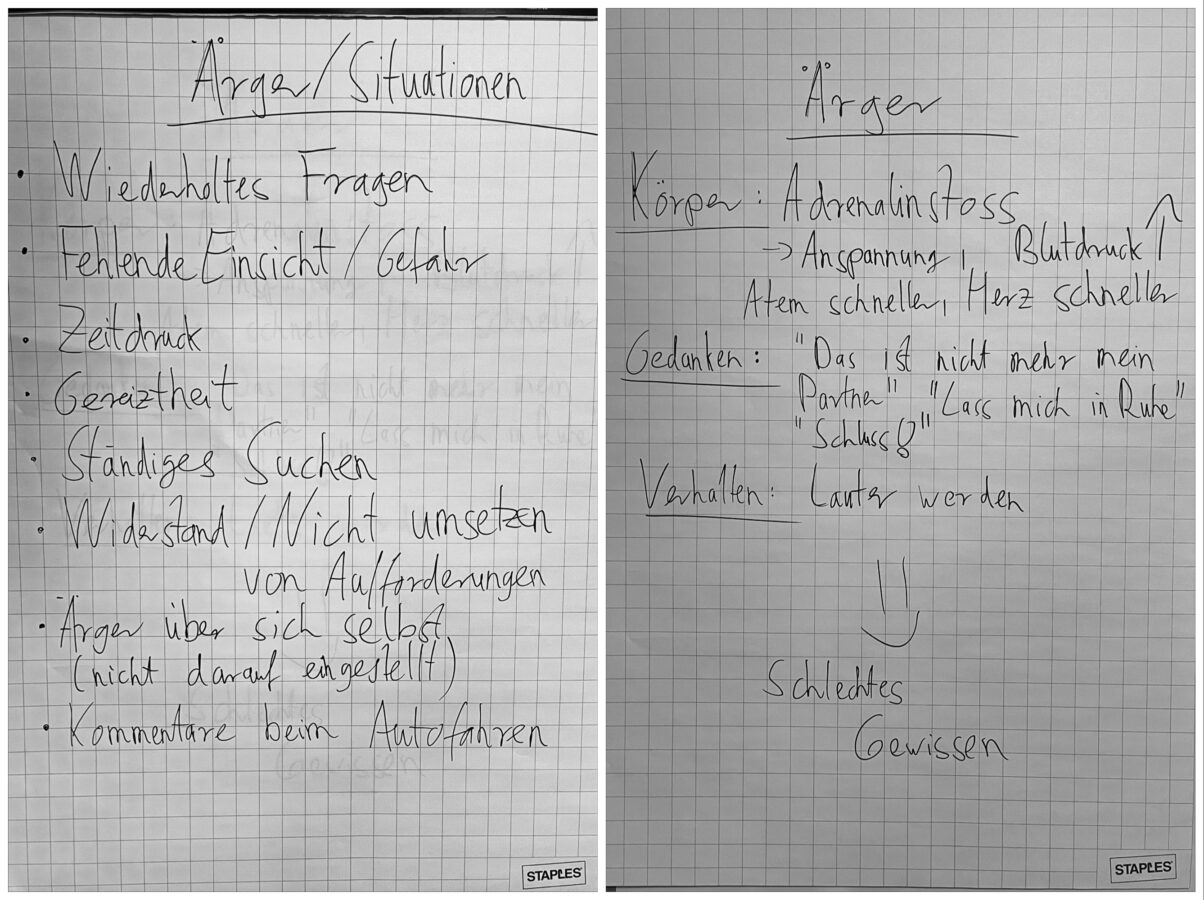 Ärger/Situationen
• Wiederholtes Fragen
• Fehlende Einsicht/Gefahr
• Zeitdruck
• Gereiztheit
• Ständiges Suchen
• Widerstand/Nicht umsetzen
von Aufforderungen
• Ärger über sich selbst
(nicht darauf eingestellt)
• Kommentare beim Autofahren
STAPLES
Ärger
Körper: Adrenalinstoss
→ Anspannung, Blutdruck ↑
Atem schneller, Herz schneller
Gedanken: "Das ist nicht mehr mein
Partner" "Lass mich in Ruhe"
"Schluss!"
Verhalten: Lauter werden
Schlechtes
Gewissen
STAPLES